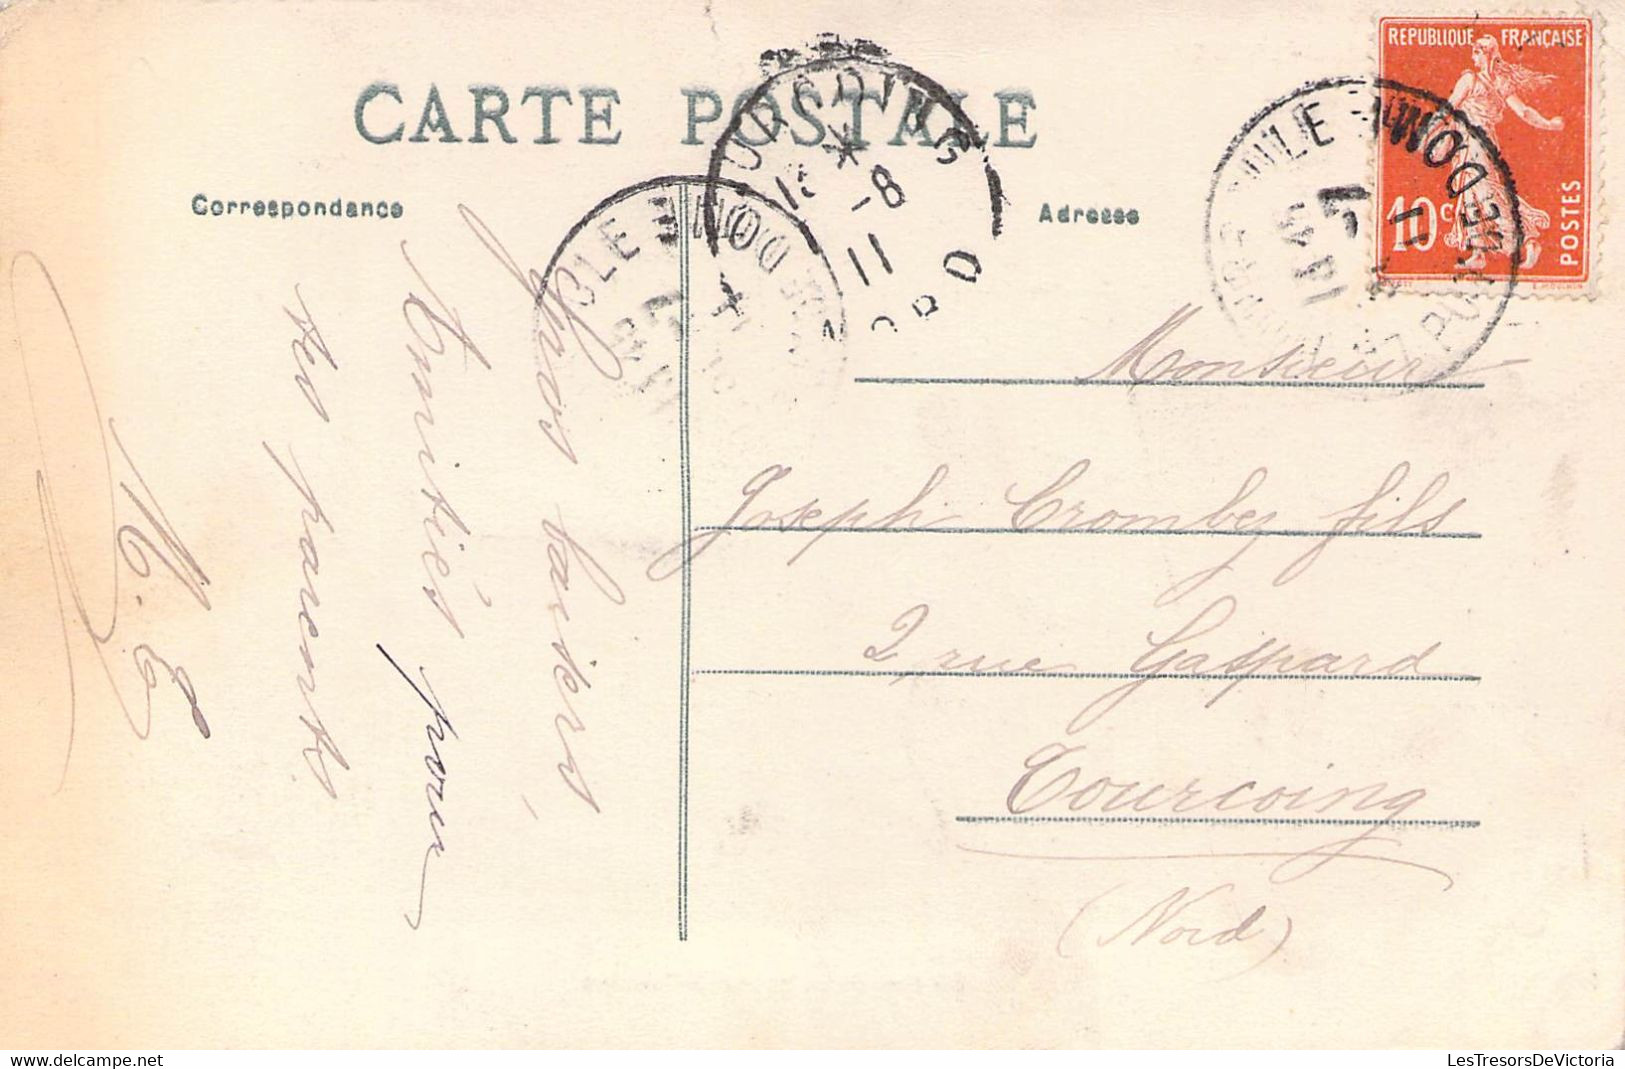 CARTE POSTALE
Correspondance
Adresse
REPUBLIQUE FRANÇAISE
10c
POSTES
Gros baisers
Amitiés pour
tes parents
M. E
Monsieur
Joseph Crombez fils
2, rue Gaspard
Tourcoing
(Nord)
-8
11
LesTresorsDeVictoria